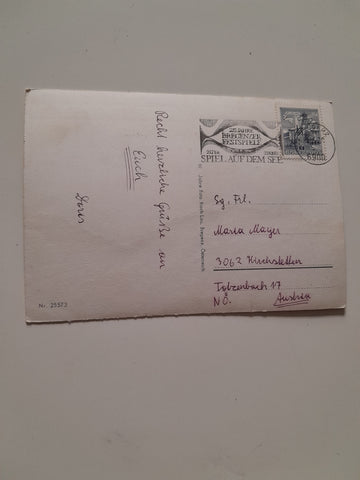 Recht herzliche Grüße an
Euch
Doris
Nr. 25573
25 JAHRE
BREGENZER
FESTSPIELE
SPIEL AUF DEM SEE
6900
Sg. Frl.
Maria Mayer
3062 Kirchstetten
Totzenbach 17
NÖ. Austria